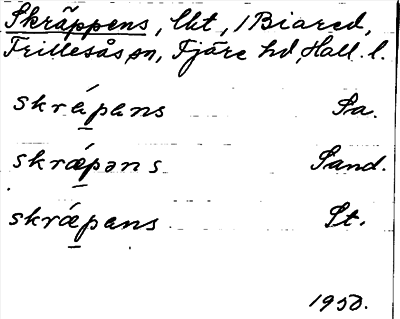 Skräppens, lht, i Biared,
Frillesås sn, Fjäre hd, Hall. l.
skrápəns Sa.
skrǽpəns Sand.
skrǽpəns St.
1950.